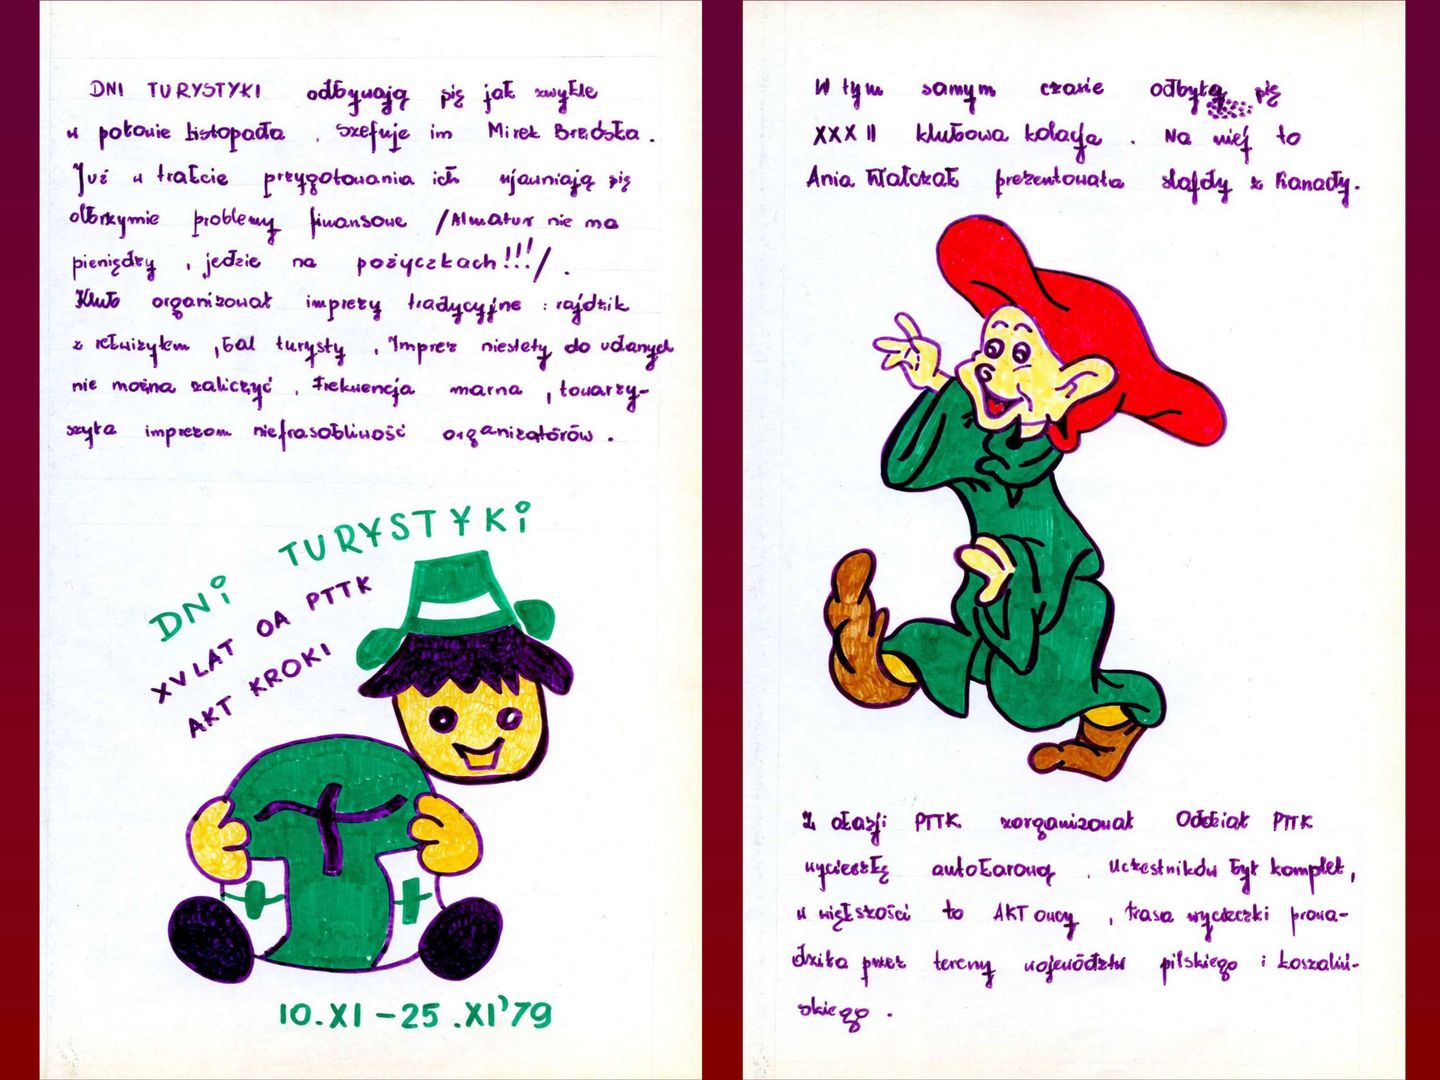 DNI TURYSTYKI odbywają się jak zwykle
w połowie listopada . Szefuje im Mirek Brzóska .
Już w trakcie przygotowania ich ujawniają się
olbrzymie problemy finansowe /Almatur nie ma
pieniędzy , jedzie na pożyczkach!!!/ .
Klub organizował imprezy tradycyjne : rajdzik
z rekwizytem , bal turysty , Imprez niestety do udanych
nie można zaliczyć . Frekwencja marna , towarzy-
szyła imprezom niefrasobliwość organizatorów .
DNI TURYSTYKI
XV LAT OA PTTK
AKT KROKI
10.XI - 25.XI'79
W tym samym czasie odbyła się
XXXII klubowa kolacja . Na niej to
Ania Walczak prezentowała slajdy z Kanady .
Z okazji PTTK zorganizował Oddział PTTK
wycieszkę autokarową . Uczestników był komplet ,
w większości to AKT owcy , trasa wycieczki prowa-
dziła przez tereny województw pilskiego i koszaliń-
skiego .